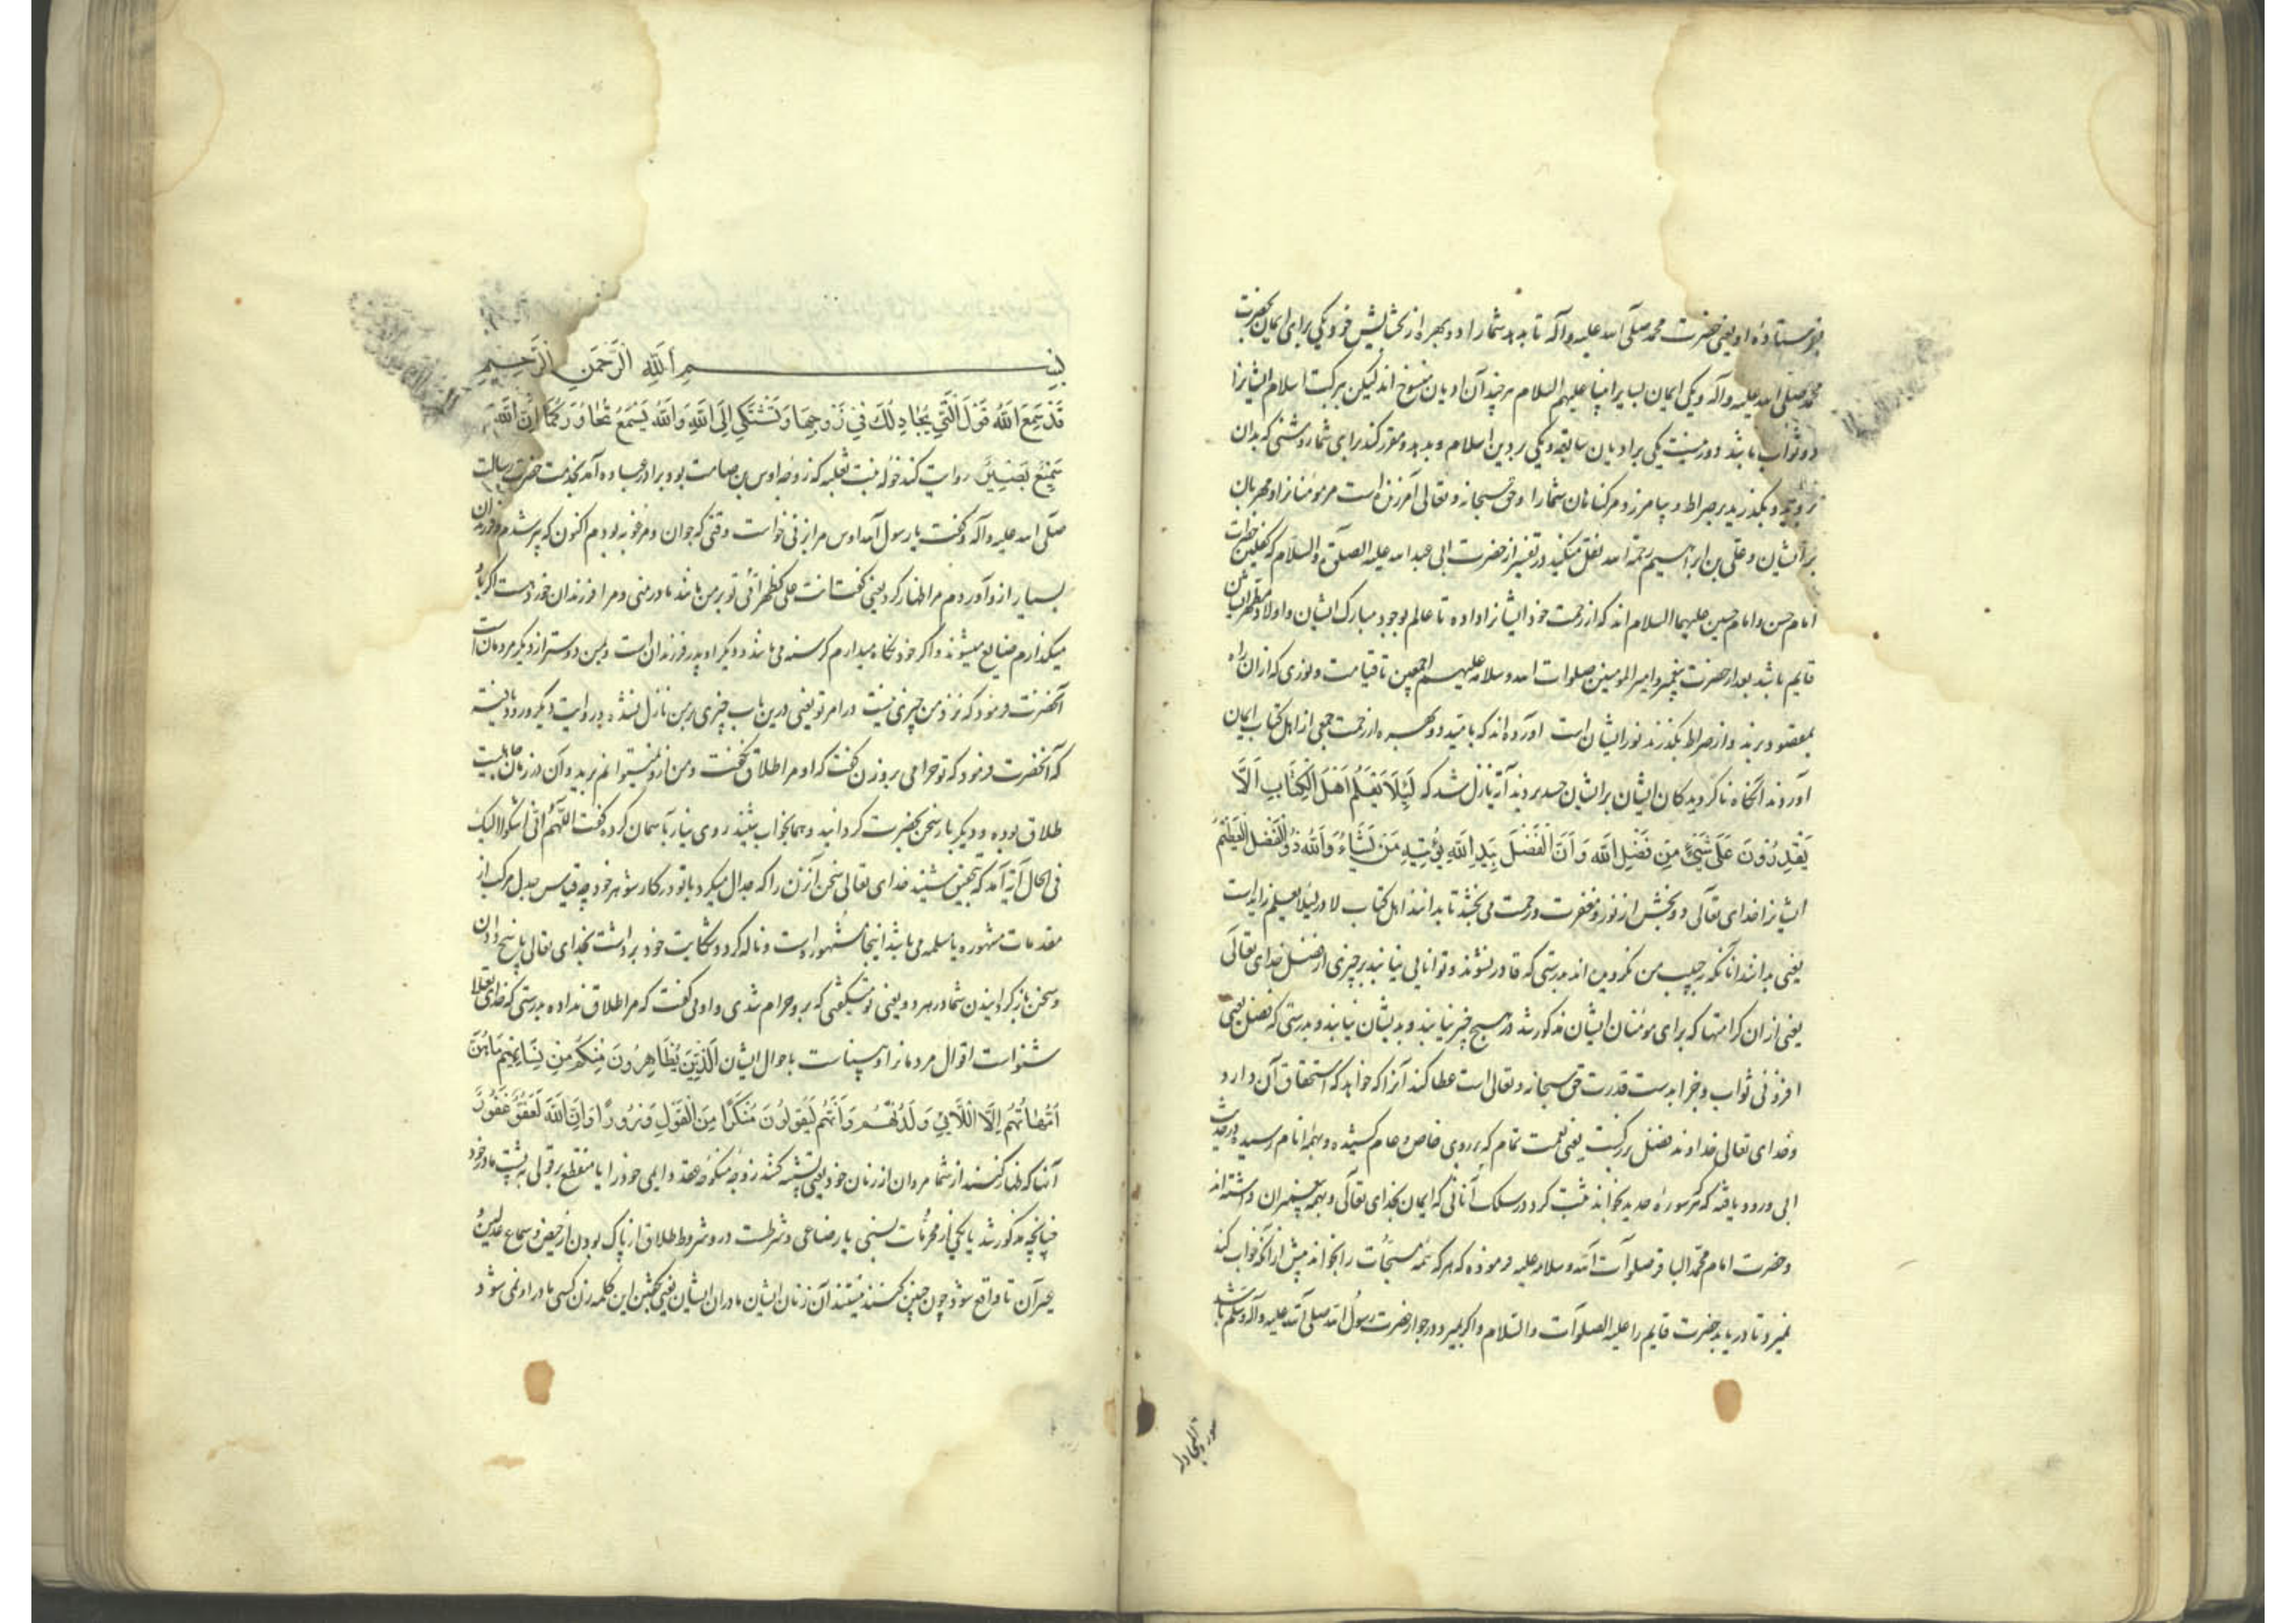 بفرستاده او یعنی حضرت محمد صلی الله علیه وآله تا بدهد شما را دو بهره از بخشایش خود یکی برای ایمان بحضرت
محمد صلی الله علیه وآله ویکی ایمان بسایر انبیا علیهم السلام هر چند آن ادیان منسوخ اند لیکن ببرکت اسلام ایشانرا
دو ثواب باشد دو مرتبت یکی بر ادیان سابقه ویکی بر دین اسلام و بدهد و مقرر کند برای شما روشنی که بدان
بروید و بگذرید بر صراط و بیامرزد مر گناهان شما را و حق سبحانه وتعالی آمرزنده است مر مومنانرا و مهربان
بر ایشان وعلی بن ابراهیم رحمة الله نقل میکند در تفسیر از حضرت ابی عبد الله علیه الصلوة والسلام که کفلین حضرات
امام حسن وامام حسین علیهما السلام اند که از رحمت خود ایشانرا داده تا عالم بوجود مبارک ایشان واولاد مطهر ایشان
قایم باشد بعد از حضرت پیغمبر وامیر المومنین صلوات الله وسلامه علیهم اجمعین تا قیامت و نوری که از ان راه
بمقصود برند و از صراط بگذرند نور ایشان است آورده اند که بامید دو بهره از رحمت جمعی از اهل کتاب ایمان
آوردند آنگاه ناگرویدگان ایشان بر ایشان حسد بردند آیه نازل شد که لِئَلَّا يَعْلَمَ اَهْلُ الْكِتَابِ اَلَّا
يَقْدِرُونَ عَلَى شَيْءٍ مِنْ فَضْلِ اللَّهِ وَ اَنَّ الْفَضْلَ بِيَدِ اللَّهِ يُؤْتِيهِ مَنْ يَشَاءُ وَاللَّهُ ذُو الْفَضْلِ الْعَظِيمِ
ایشانرا خدای تعالی دو بخش از نور و مغفرت و رحمت می بخشد تا بدانند اهل کتاب لا در لئلا یعلم زایداست
یعنی بدانند آنانکه بحبیب من نگرویده اند بدرستی که قادر نشوند و توانایی نیابند بر چیزی از فضل خدای تعالی
یعنی از ان کرامتها که برای مومنان ایشان مذکور شد در هیچ چیز نیابند و بدیشان نیابند و بدرستی که فضل یعنی
افزونی ثواب و جزا بدست قدرت حق سبحانه وتعالی است عطا کند آنرا که خواهد که استحقاق آن دارد
وخدای تعالی خداوند فضل بزرگست یعنی نعمت تمام که بر روی خاص و عام کشیده و بهمه انام رسیده در حدیث
ابی ورود یافته که هر سورهٔ حدید بخواند مثبت گردد در سلک آنانی که ایمان بخدای تعالی و بهمه پیغمبران داشته اند
وحضرت امام محمد الباقر صلوات الله وسلامه علیه فرموده که هر که همه مسبحات را بخواند پیش از آنکه خواب کند
نمیرد تا دریابد حضرت قایم را علیه الصلوات والسلام واگر بمیرد در جوار حضرت رسول الله صلی الله علیه وآله وسلم باشد
سورة المجادله
بِسْمِ اللَّهِ الرَّحْمَنِ الرَّحِيمِ
قَدْ سَمِعَ اللَّهُ قَوْلَ الَّتِي تُجَادِلُكَ فِي زَوْجِهَا وَتَشْتَكِي اِلَى اللَّهِ وَاللَّهُ يَسْمَعُ تَحَاوُرَكُمَا اِنَّ اللَّهَ
سَمِيعٌ بَصِيرٌ روایت کند خوله بنت ثعلبه که زوجه اوس بن صامت بود و برادر عباده آمد بخدمت حضرت رسالت
صلی الله علیه وآله وگفت یا رسول الله اوس مرا بزنی خواست وقتی که جوان و مرفه بودم اکنون که پیر شدم و فرزندان
بسیار از و آوردم مرا ظهار کرد یعنی گفت انت علی کظهر امی تو بر من مانند مادر منی و مرا فرزندان خورد است اگر باو
میگذارم ضایع میشوند واگر خود نگاه میدارم گرسنه می باشند و دیگر او پدر فرزندان است و بمن دوستر از دیگر مردمان است
آنحضرت فرمود که نزد من چیزی نیست در امر تو یعنی درین باب چیزی بر من نازل نشده و در روایت دیگر ورود یافته
که آنحضرت فرمود که تو حرامی برو زن گفت که او مرا طلاق نگفت و من از و نمیتوانم برید و آن در زمان جاهلیت
طلاق بوده و دیگر بار سخن بحضرت گردانید و همان جواب شنید روی نیاز بآسمان کرده گفت اللهم انی اشکو الیک
فی الحال آیه آمد که بتحقیق شنید خدای تعالی سخن آن زن را که جدال میکرد با تو در کار شوهر خود چه قیاس جدل مرکب از
مقدمات مشهوره یا مسلمه می باشد اینجا مشهور است و ناله کرد و شکایت خود برداشت بخدای تعالی پاسخ دادن
و سخن بازگردانیدن شما در هر دو یعنی تو میگفتی که برو حرام شدی و او می گفت که مرا طلاق نداده بدرستی که خدای تعالی
شنواست اقوال مردمانرا و بیناست باحوال ایشان اَلَّذِينَ يُظَاهِرُونَ مِنْكُمْ مِنْ نِسَائِهِمْ مَا هُنَّ
اُمَّهَاتُهُمْ اِلَّا اللَّائِي وَلَدْنَهُمْ وَاَنَّهُمْ لَيَقُولُونَ مُنْكَرًا مِنَ الْقَوْلِ وَزُورًا وَاِنَّ اللَّهَ لَعَفُوٌّ غَفُورٌ
آنها که ظهار کنند از شما مردان از زنان خود یعنی تشبیه کنند زوجه منکوحه بعقد دایمی خود را یا منقطع بر قولی به پشت مادر خود
چنانچه مذکور شد یا بیکی از محرمات نسبی یا رضاعی و شرطست درو شروط طلاق از پاک بودن از حیض و سماع عدلین و
غیر آن تا واقع شود چون چنین کنند نیستند آن زنان ایشان مادران ایشان یعنی بگفتن این کلمه زن کسی مادر او نمی شود